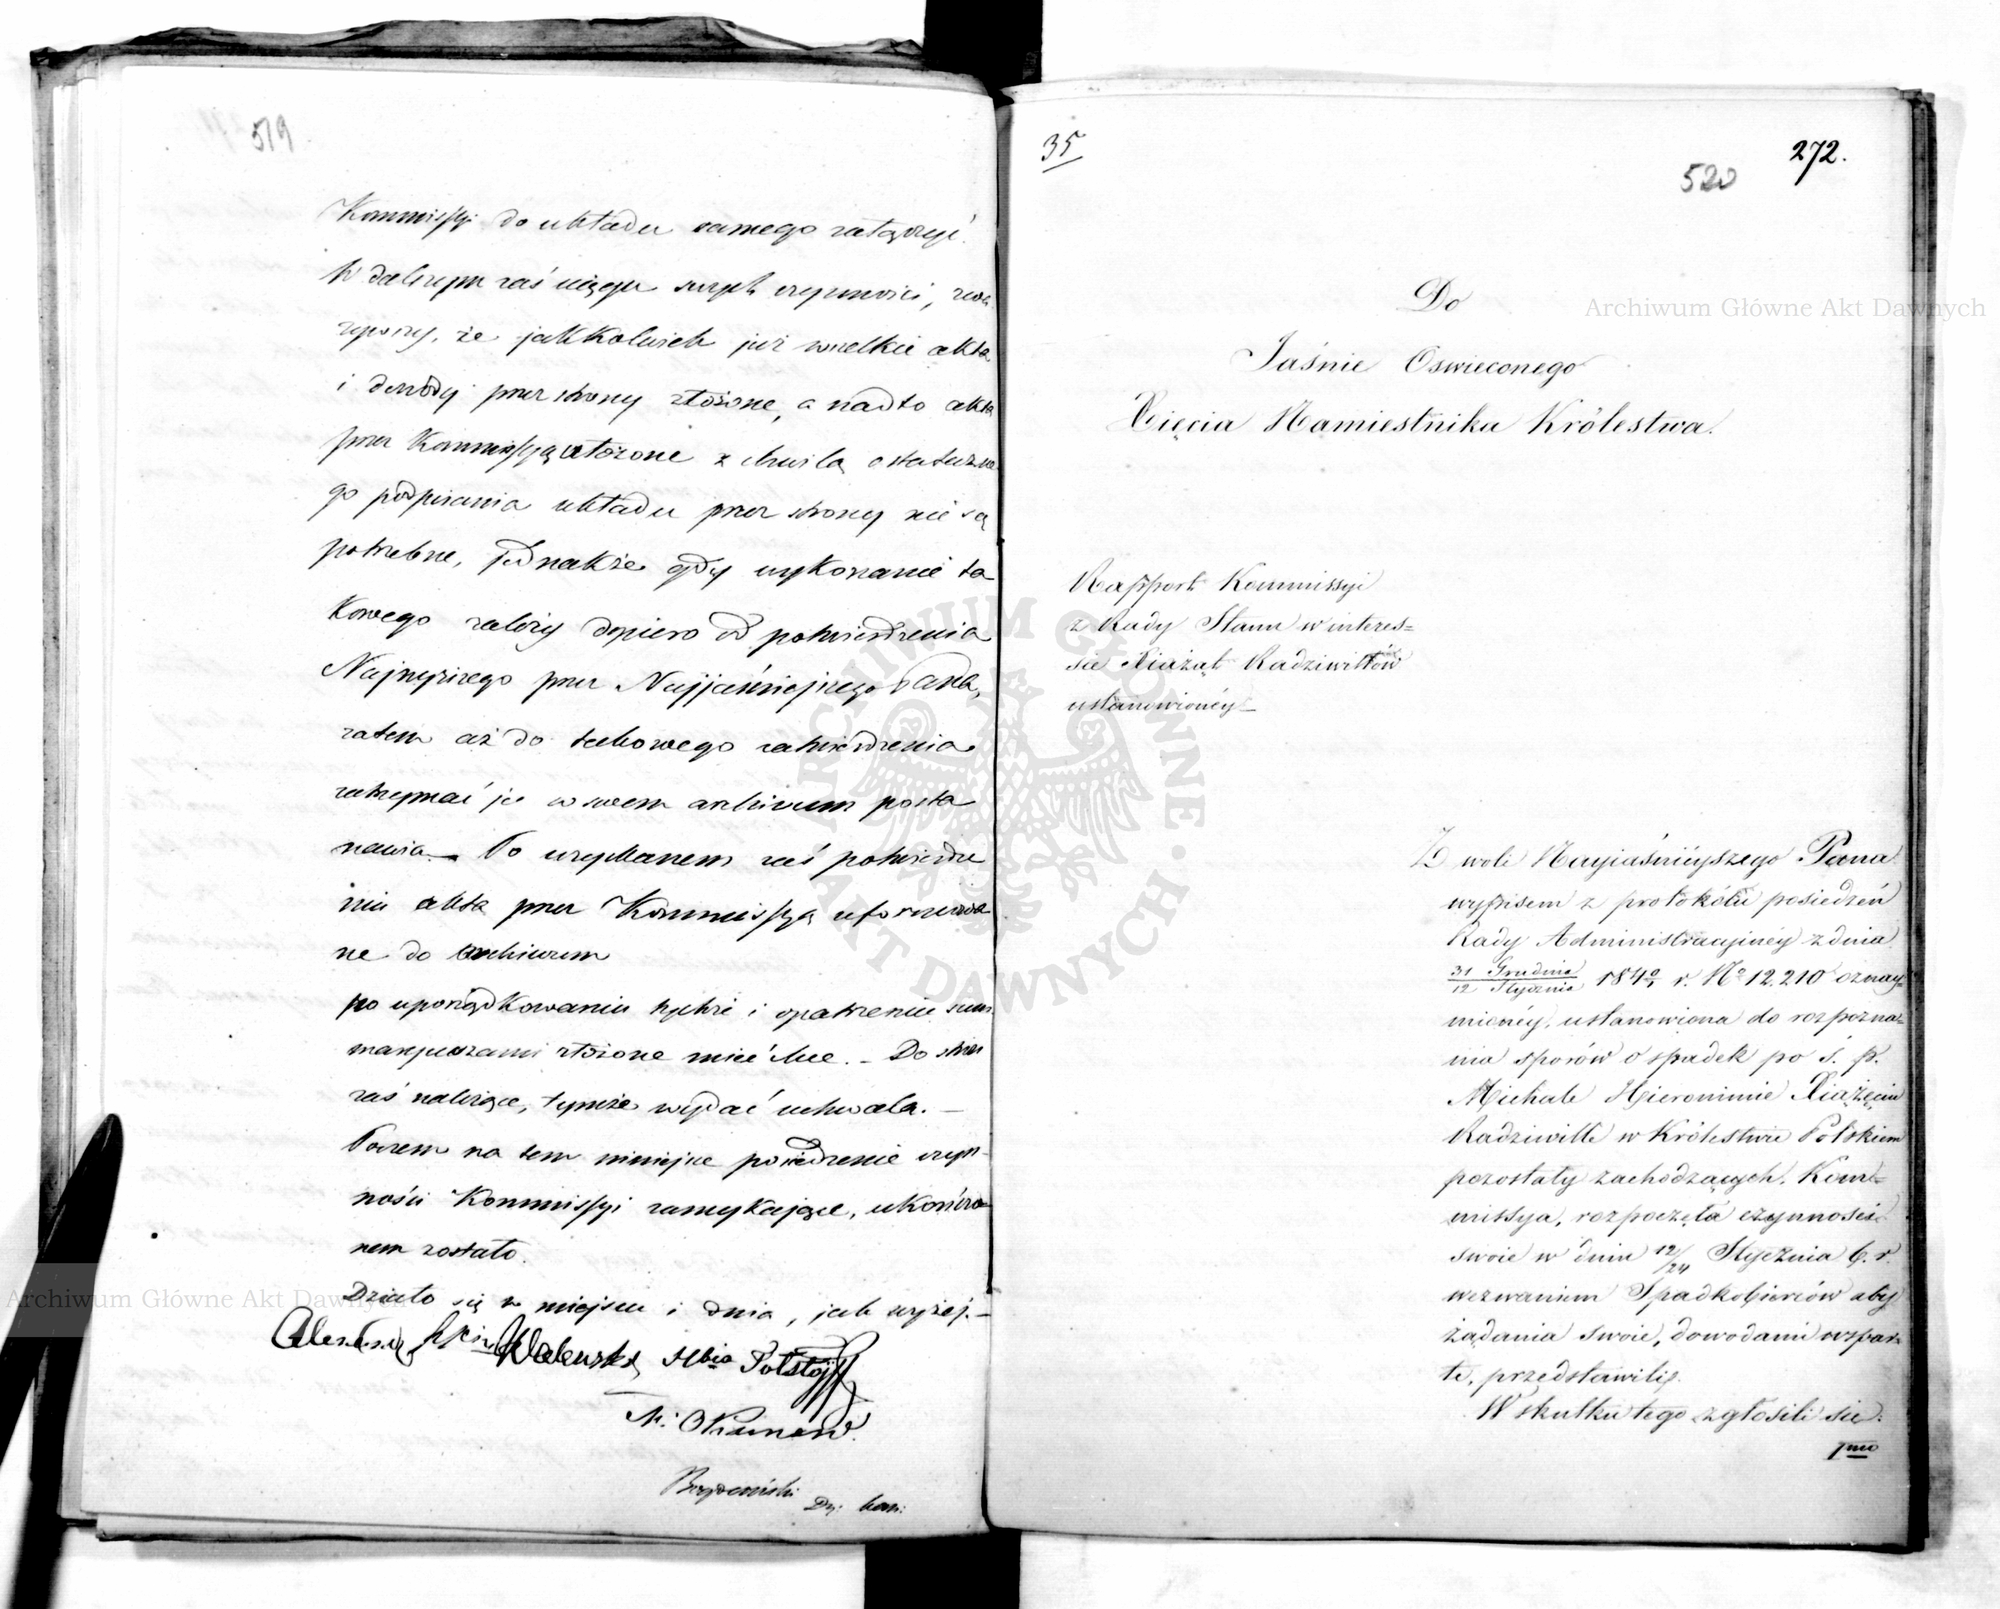 519
Kommissyi do układu samego załączyć.
W dalszym zaś ciągu swych czynności, zwa
żywszy, że jakkolwiek już wszelkie akta
i dowody przez strony złożone, a nadto akta
przez Kommissyą ułożone z chwilą ostateczne
go podpisania układu przez strony nie są
potrzebne, jednakże gdy wykonanie ta
kowego zależy dopiero od potwierdzenia
Najwyższego przez Najjaśniejszego Pana,
zatem aż do takowego zatwierdzenia
zatrzymać je w swem archivum posta
nawia. — Po uzyskanem zaś potwierdze
niu akta przez Kommissyą uformowa
ne do archivum
po uporządkowaniu tychże i opatrzeniu sum
maryuszami złożone mieć chce. — Do stron
zaś należące, tymże wydać uchwala. —
Poczem na tem niniejsze posiedzenie czyn-
ności Kommissyi zamykające, ukończo
nem zostało.
Działo się w miejscu i dniu, jak wyżej. —
Walewski Hbia Potocki
35
272.
520
Do
Jaśnie Oswieconego
Xięcia Namiestnika Królestwa.
Rapport Kommissyi
z Rady Stanu w interes=
sie Xiążąt Radziwiłłów
ustanowionéy —
Z woli Nayiaśnieyszego Pana
wypisem z protokółu posiedzeń
Rady Administracyinéy z dnia
31 Grudnia / 12 Stycznia 1840/1 r. No 12.210 oznay=
mionéy, ustanowiona do rozpozna=
nia sporów o spadek po ś. p.
Michale Hieronimie Xiążęciu
Radziwille w Królestwie Polskiem
pozostały zachodzących, Kom=
missya, rozpoczęła czynności
swoie w dniu 12/24 Stycznia b. r.
wezwaniem Spadkobierców aby
żądania swoie, dowodami wspar=
te, przedstawili.
W skutku tego zgłosili się:
1mo
Archiwum Główne Akt Dawnych
Archiwum Główne Akt Dawnych
ARCHIWUM GŁÓWNE AKT DAWNYCH